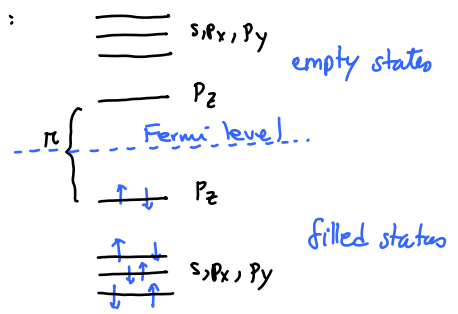 :
s, px, py
empty states
pz
π
Fermi level...
pz
filled states
s, px, py